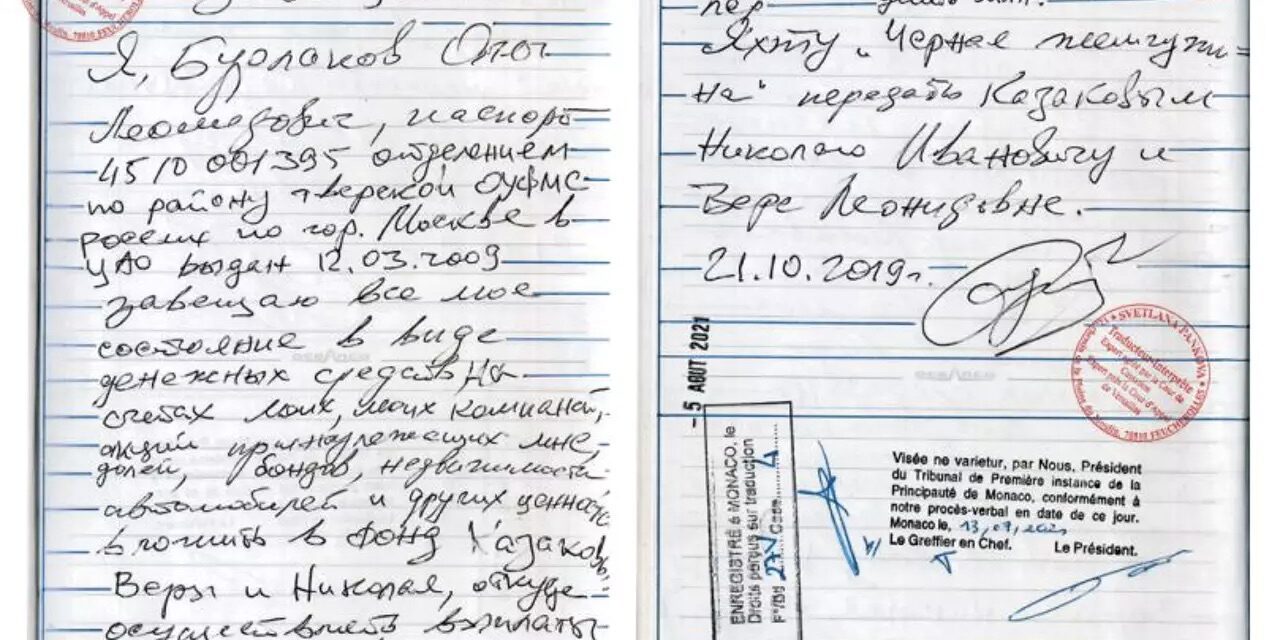 Я, Бурлаков Олег
Леонидович, паспорт
4510 001395 отделением
по району тверской ОУФМС
россии по гор. Москве в
ЦАО выдан 12.03.2009
завещаю все мое
состояние в виде
денежных средств на
счетах моих, моих компаний,
акций принадлежащих мне,
долей, бондов, недвижимости
автомобилей и других ценностей
вложить в Фонд Казаковых
Веры и Николая, откуда
осуществлять выплаты
Яхту „Черная жемчужи-
на“ передать Казаковым
Николаю Ивановичу и
Вере Леонидовне.
21.10.2019г.
SVETLANA PANKOVA
Traducteur-Interprète
78810 FEUCHEROLLES
- 5 AOUT 2021
ENREGISTRÉ à MONACO, le
Droits perçus sur traduction
F°/Bd 27V Case 4
Visée ne varietur, par Nous, Président
du Tribunal de Première instance de la
Principauté de Monaco, conformément à
notre procès-verbal en date de ce jour.
Monaco le, 13,07,2021
Le Greffier en Chef. Le Président.